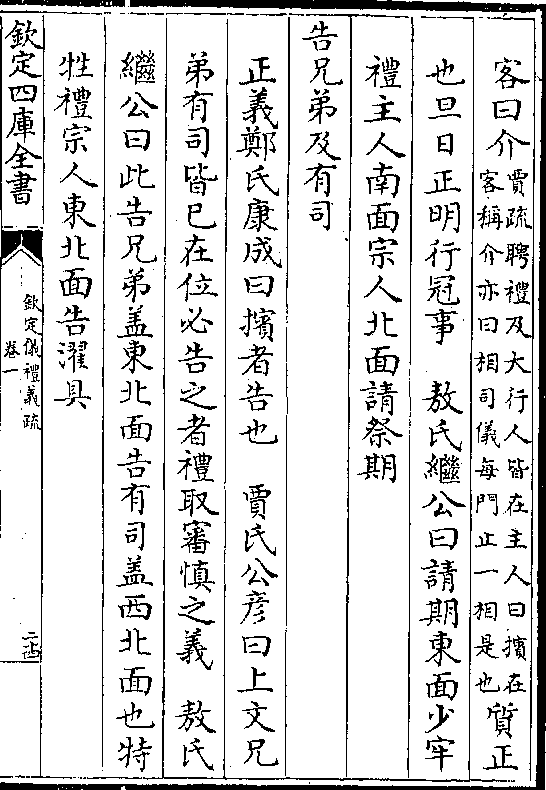 客曰介賈疏聘禮及大行人皆在主人曰擯在客稱介亦曰相司儀每門止一相是也質正
也旦日正明行冠事　敖氏繼公曰請期東面少牢
禮主人南面宗人北面請祭期
告兄弟及有司
正義鄭氏康成曰擯者告也　賈氏公彦曰上文兄
弟有司皆已在位必告之者禮取審慎之義　敖氏
繼公曰此告兄弟盖東北面告有司盖西北面也特
牲禮宗人東北面告濯具
欽定四庫全書
欽定儀禮義疏
卷一
二十四